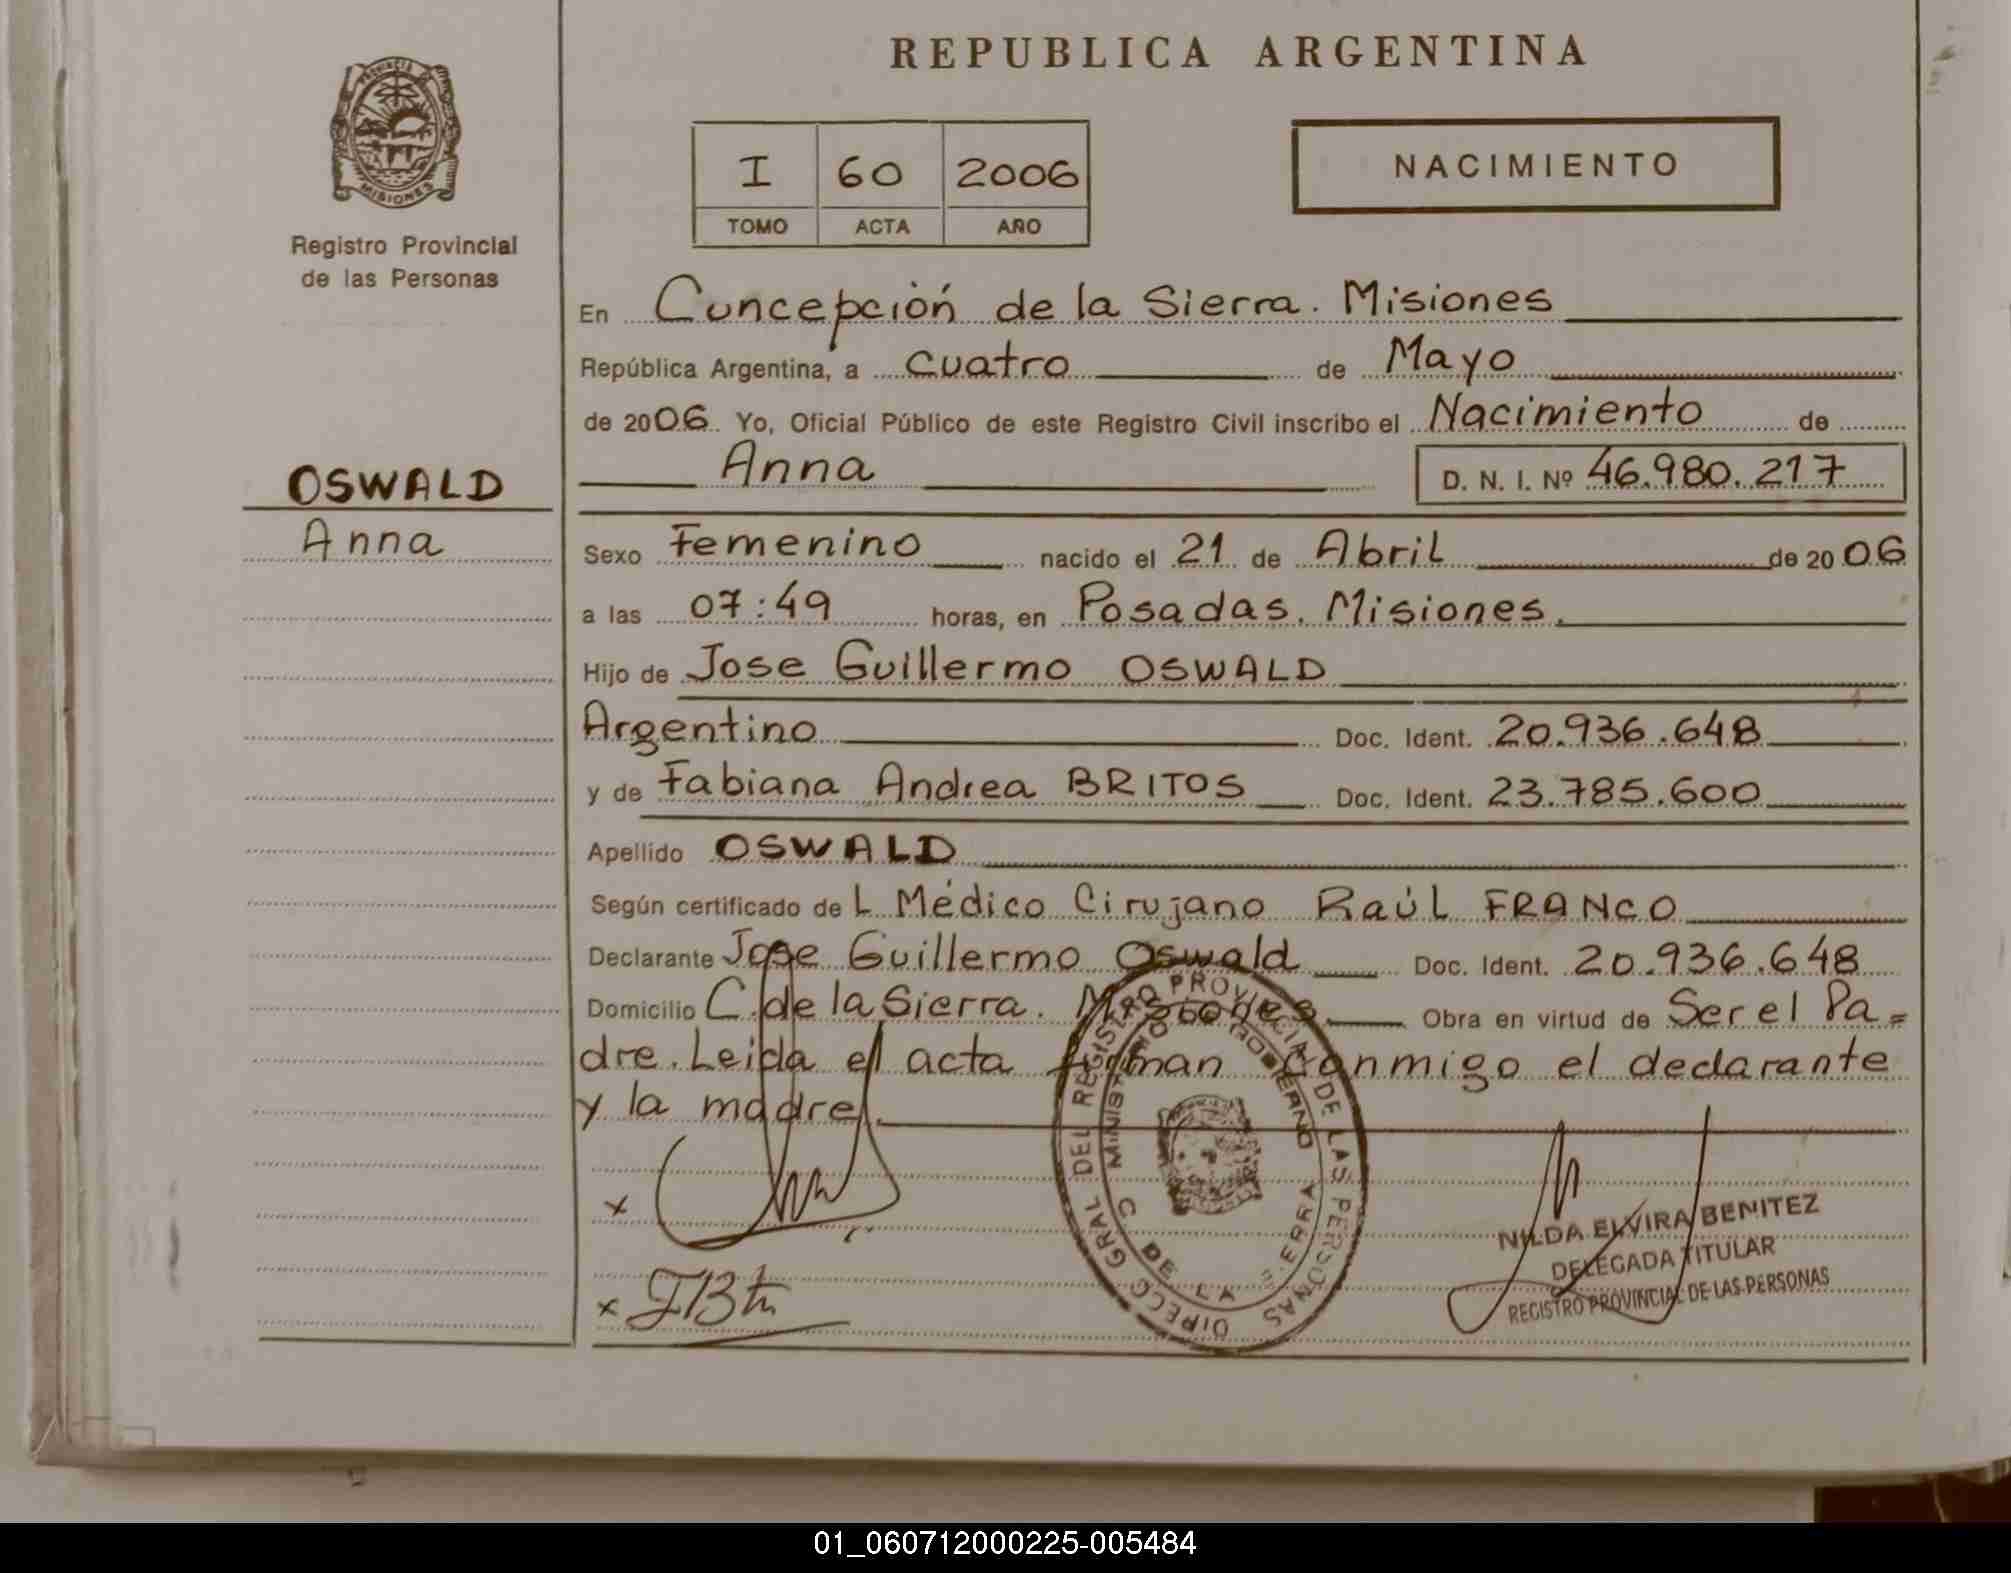 REPUBLICA ARGENTINA
PROVINCIA DE MISIONES
Registro Provincial
de las Personas
I 60 2006
TOMO ACTA AÑO
NACIMIENTO
En Concepción de la Sierra. Misiones
República Argentina, a cuatro de Mayo
de 2006 Yo, Oficial Público de este Registro Civil inscribo el Nacimiento de
Anna D. N. I. Nº 46.980.217
OSWALD
Anna
Sexo Femenino nacido el 21 de Abril de 2006
a las 07:49 horas, en Posadas. Misiones.
Hijo de Jose Guillermo OSWALD
Argentino Doc. Ident. 20.936.648
y de Fabiana Andrea BRITOS Doc. Ident. 23.785.600
Apellido OSWALD
Según certificado de L Médico Cirujano Raúl FRANCO
Declarante Jose Guillermo Oswald Doc. Ident. 20.936.648
Domicilio C. de la Sierra. Misiones Obra en virtud de Ser el Pa=
dre. Leida el acta firman conmigo el declarante
y la madre.
DIRECC GRAL DEL REGISTRO PROVINCIAL DE LAS PERSONAS
MINISTERIO GOBIERNO
C DE LA SIERRA
x
x
NILDA ELVIRA BENITEZ
DELEGADA TITULAR
REGISTRO PROVINCIAL DE LAS PERSONAS
01_060712000225-005484